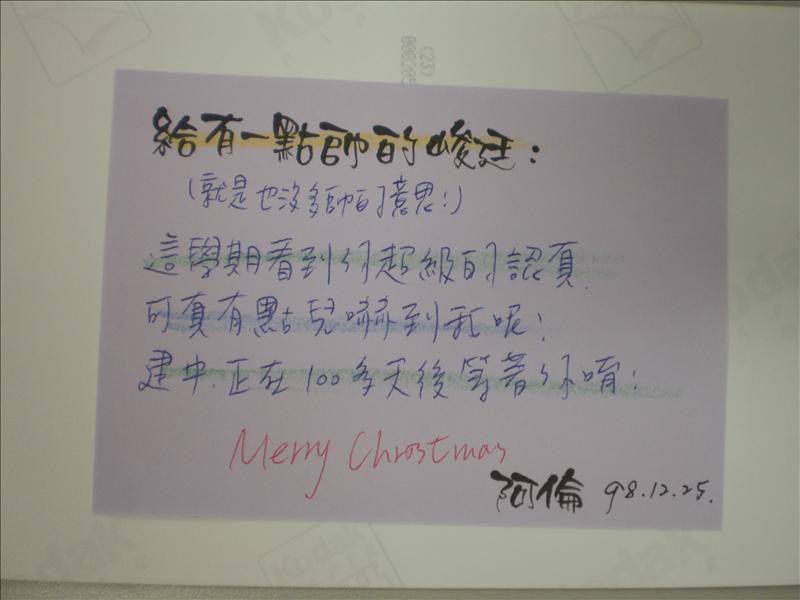 (23)
Kodak
給有一點帥的峻廷：
(就是也沒多帥的意思!)
這學期看到你超級的認真.
可真有點兒嚇到我呢!
建中.正在100多天後等著你唷!
Merry Christmas
阿倫 98.12.25.
Kodak
Kodak
Kodak